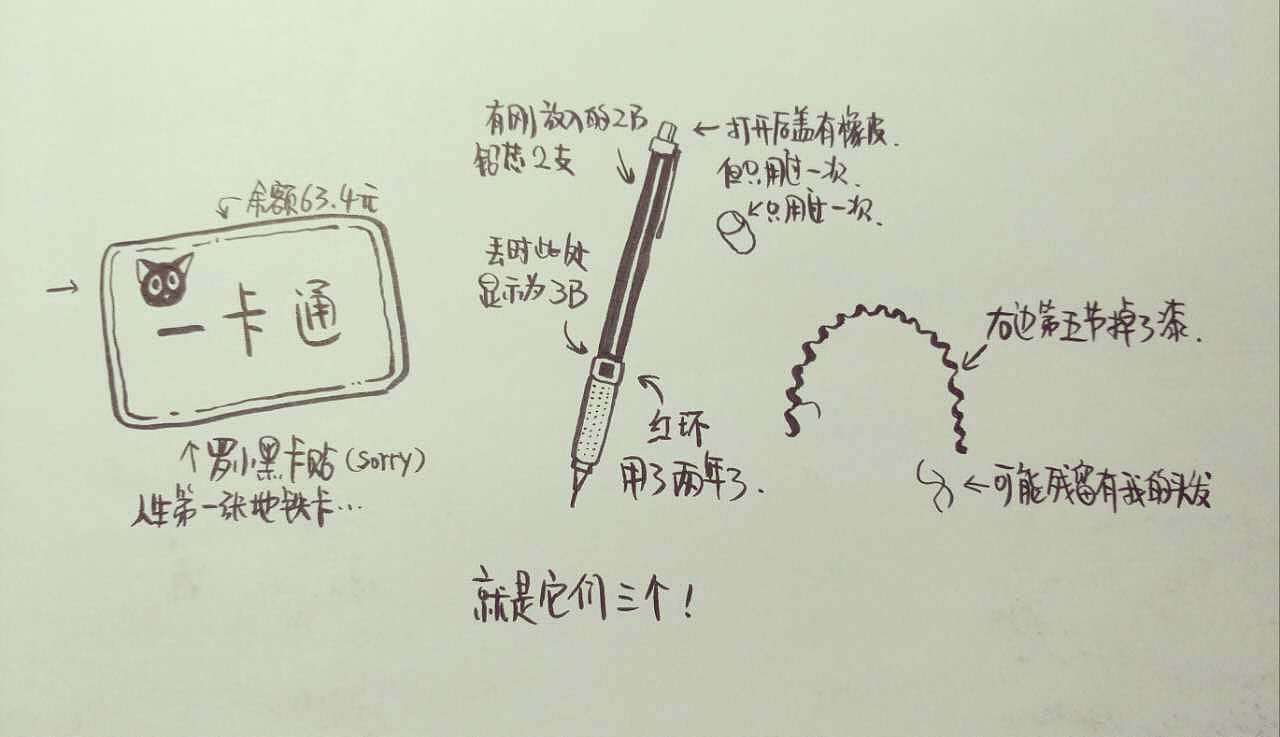 余额63.4元
一卡通
罗小黑卡贴(sorry)
人生第一张地铁卡...
有刚放入的2B
铅芯2支
打开后盖有橡皮.
但只用过一次.
只用过一次.
丢时此处
显示为3B
红环
用了两年了.
右边第五节掉了漆.
可能残留有我的头发
就是它们三个!